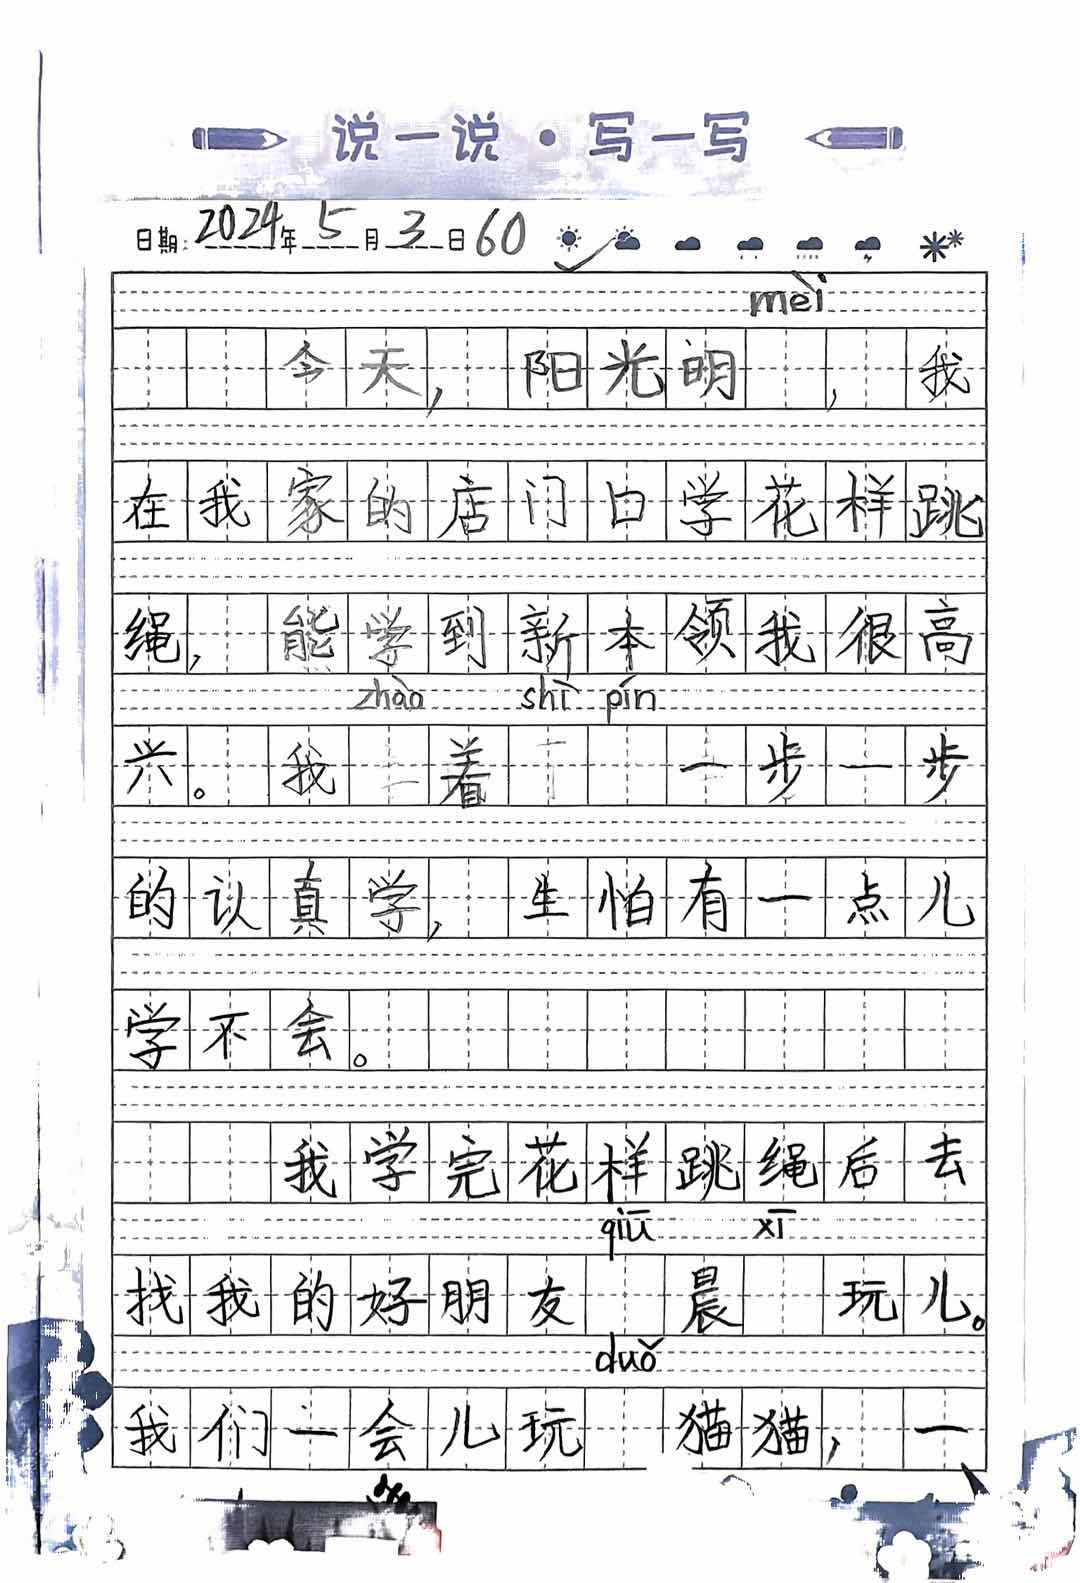 说一说·写一写
日期: 2024年5月3日 60
mèi
今天, 阳光明 , 我
在我家的店门口学花样跳
绳, 能学到新本领我很高
zhào shì pín
兴。 我 着 一步一步
的认真学, 生怕有一点儿
学不会。
我学完花样跳绳后去
qiū xī
找我的好朋友 晨 玩儿。
duǒ
我们一会儿玩 猫猫, 一